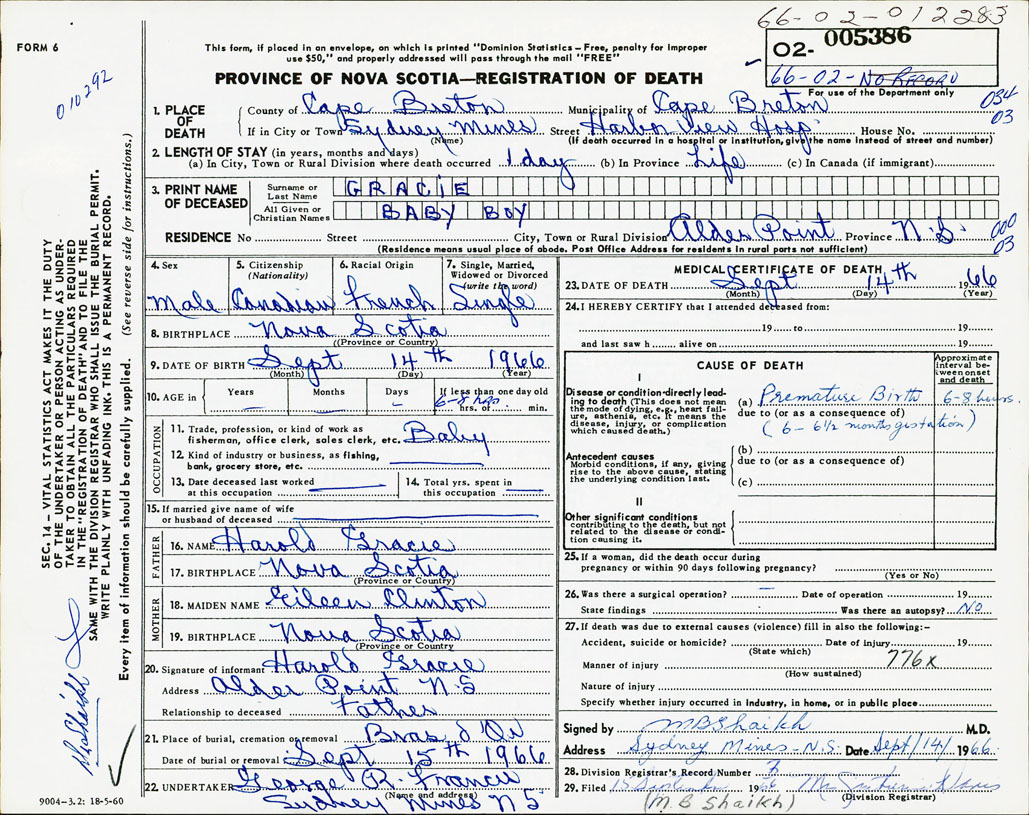 66-02-012283
FORM 6
010292
This form, if placed in an envelope, on which is printed "Dominion Statistics – Free, penalty for improper
use $50," and properly addressed will pass through the mail "FREE"
PROVINCE OF NOVA SCOTIA—REGISTRATION OF DEATH
02- 005386
66-02- NO RECORD
For use of the Department only
034
03
1. PLACE OF DEATH County of Cape Breton Municipality of Cape Breton
If in City or Town Sydney Mines Street Harbor View Hosp House No.
(Name) (If death occurred in a hospital or institution, give the name instead of street and number)
2. LENGTH OF STAY (in years, months and days)
(a) In City, Town or Rural Division where death occurred 1 day (b) In Province Life (c) In Canada (if immigrant)
3. PRINT NAME OF DECEASED Surname or Last Name GRACIE
All Given or Christian Names BABY BOY
RESIDENCE No Street City, Town or Rural Division Alder Point Province N.S.
000
03
(Residence means usual place of abode. Post Office Address for residents in rural parts not sufficient)
4. Sex 5. Citizenship (Nationality) 6. Racial Origin 7. Single, Married, Widowed or Divorced (write the word)
Male Canadian French Single
8. BIRTHPLACE Nova Scotia
(Province or Country)
9. DATE OF BIRTH Sept 14th 1966
(Month) (Day) (Year)
10. AGE in Years Months Days If less than one day old
– – – 6-8 hrs hrs. or min.
OCCUPATION
11. Trade, profession, or kind of work as
fisherman, office clerk, sales clerk, etc. Baby
12. Kind of industry or business, as fishing,
bank, grocery store, etc.
13. Date deceased last worked
at this occupation
14. Total yrs. spent in
this occupation
15. If married give name of wife
or husband of deceased
FATHER
16. NAME Harold Gracie
17. BIRTHPLACE Nova Scotia
(Province or Country)
MOTHER
18. MAIDEN NAME Eileen Clinton
19. BIRTHPLACE Nova Scotia
(Province or Country
20. Signature of informant Harold Gracie
Address Alder Point N.S
Relationship to deceased Father
21. Place of burial, cremation or removal Bras d'Or
Date of burial or removal Sept 15th 1966
22. UNDERTAKER George R. Francis
(Name and address)
Sydney Mines N S
9004-3.2: 18-5-60
MEDICAL CERTIFICATE OF DEATH
23. DATE OF DEATH Sept 14th 1966
(Month) (Day) (Year)
24. I HEREBY CERTIFY that I attended deceased from:
19 to 19
and last saw h alive on 19
CAUSE OF DEATH
Approximate interval between onset and death
I
Disease or condition directly leading to death (This does not mean the mode of dying, e.g., heart failure, asthenia, etc. It means the disease, injury, or complication which caused death.)
(a) Premature Birth 6-8 hours.
due to (or as a consequence of)
(6 - 6½ months gistation)
Antecedent causes
Morbid conditions, if any, giving rise to the above cause, stating the underlying condition last.
(b)
due to (or as a consequence of)
(c)
II
Other significant conditions
contributing to the death, but not related to the disease or condition causing it.
25. If a woman, did the death occur during
pregnancy or within 90 days following pregnancy?
(Yes or No)
26. Was there a surgical operation? – Date of operation 19
State findings Was there an autopsy? NO
27. If death was due to external causes (violence) fill in also the following:–
Accident, suicide or homicide? Date of injury 19
(State which)
Manner of injury 776x
(How sustained)
Nature of injury
Specify whether injury occurred in industry, in home, or in public place
Signed by MBShaikh M.D.
Address Sydney Mines - N.S. Date Sept/14/ 1966.
28. Division Registrar's Record Number
29. Filed 1966
(M B Shaikh) (Division Registrar)
SEC. 14 – VITAL STATISTICS ACT MAKES IT THE DUTY
OF THE UNDERTAKER OR PERSON ACTING AS UNDER-
TAKER TO OBTAIN ALL THE PARTICULARS REQUIRED
IN THE "REGISTRATION OF DEATH" AND TO FILE THE
SAME WITH THE DIVISION REGISTRAR WHO SHALL ISSUE THE BURIAL PERMIT.
WRITE PLAINLY WITH UNFADING INK. THIS IS A PERMANENT RECORD.
Every item of information should be carefully supplied. (See reverse side for instructions.)